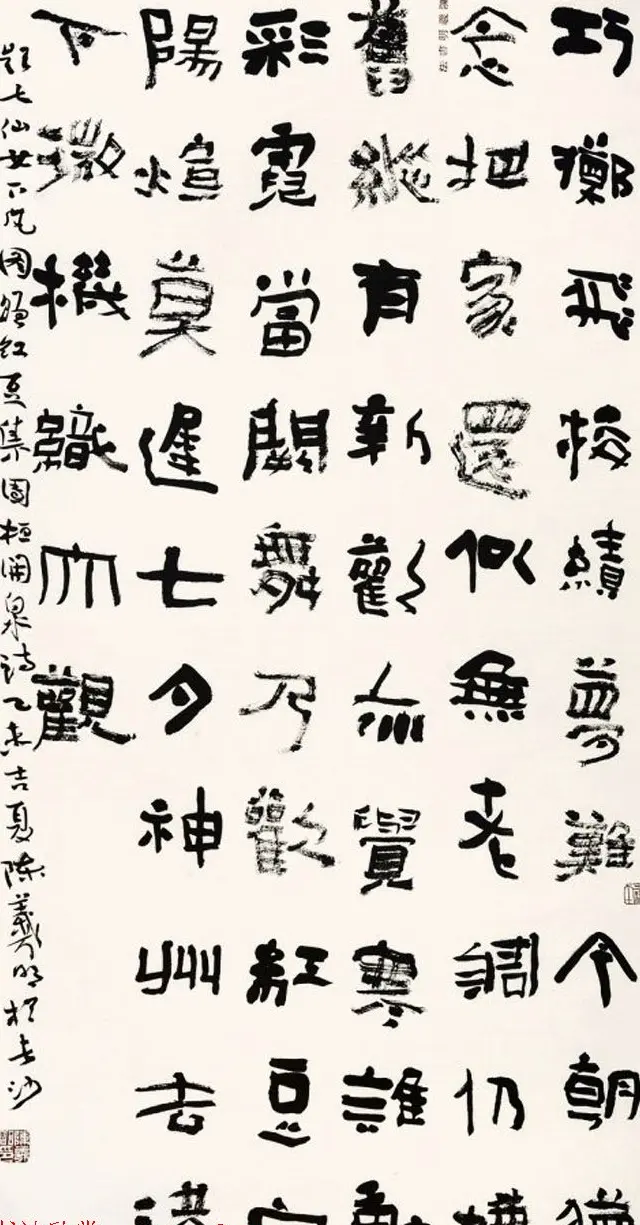 巧擲飛梭績夢難今朝猶
念把家還似無老調仍
舊縱有新歡亦覺寒誰
彩霓當闕舞乃歡紅豆
陽煊莫遲七夕神州去
下微機織大觀
題七仙女下凡図贈紅豆集図桓開泉詩乙未吉夏陳羲明於長沙